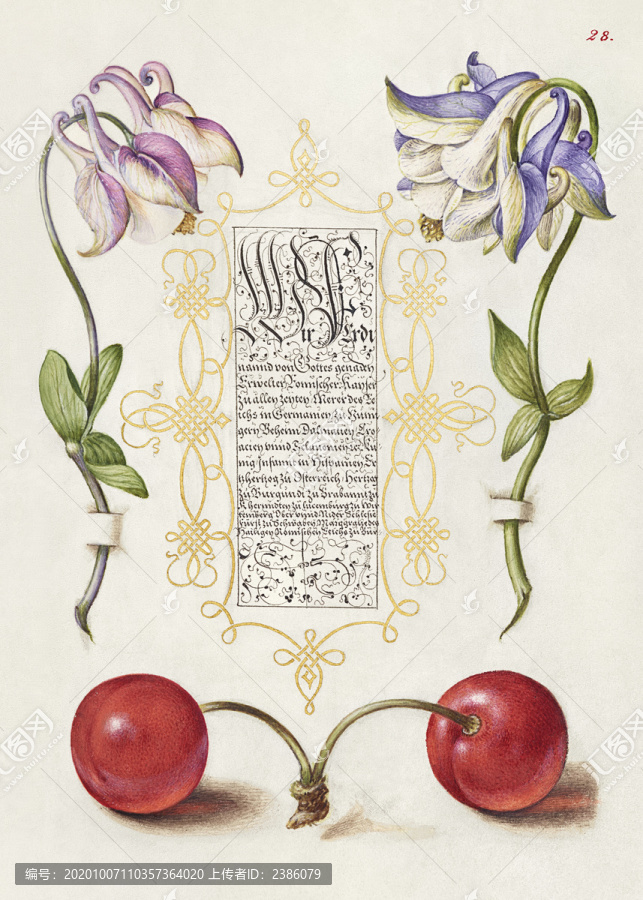 28.
Wir Ferdi
nannd von Gottes genaden
Erwelter Römischer Kayser
Zu allen zeyten Merer des Re
ichs in Germanien zu Hun
gern Beheim Dalmatien Cro
acien vnnd Sclauonien zc Kü
nig Infannt in Hispanien Er
tzhertzog zu Osterreich Hertzog
zu Burgundi zu Brabannt zu
zu Lucemburg zu Wir
temberg Ober vnnd Nider Schlesien
Fürst zu Schwaben Marggraf des
Hailigen Römischen Reichs zu Bur
编号: 20201007110357364020 上传者ID: 2386079